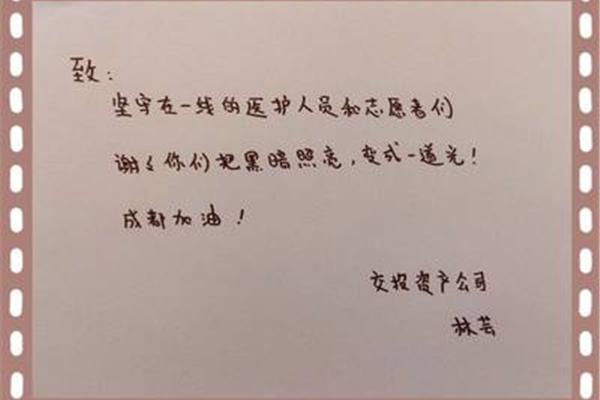 致：
坚守在一线的医护人员和志愿者们
谢々你们把黑暗照亮，变成一道光！
成都加油！
交投资产公司
林芸